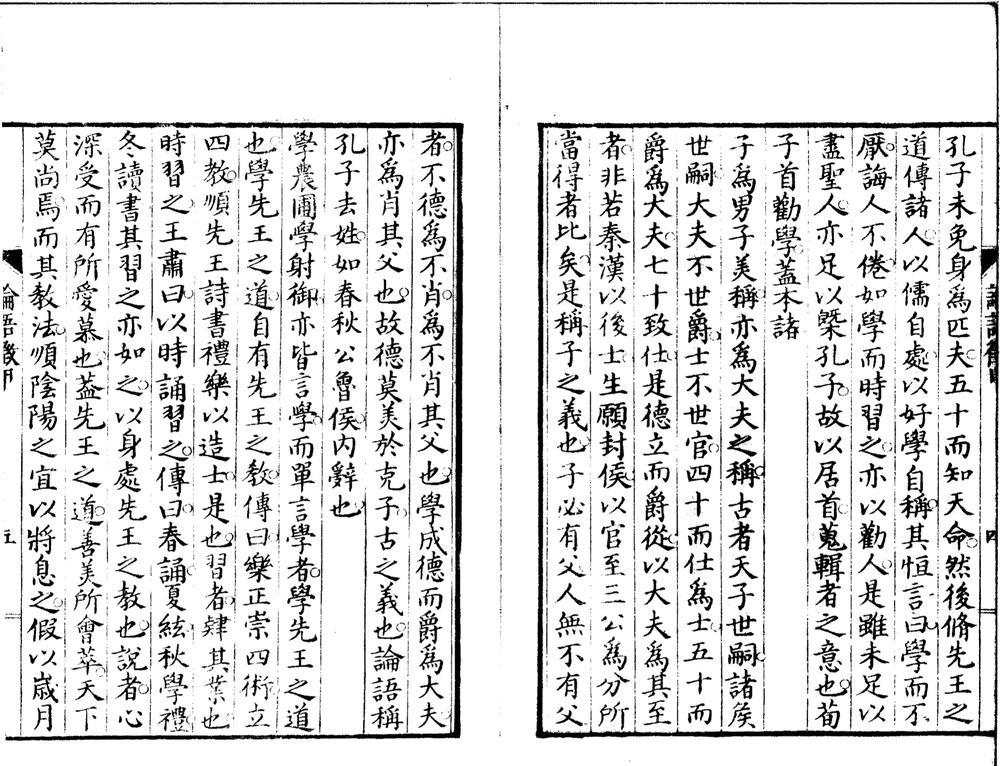 孔子未免身爲匹夫五十而知天命然後脩先王之
道傳諸人以儒自處以好學自稱其恒言曰學而不
厭誨人不倦如學而時習之亦以勸人是雖未足以
盡聖人亦足以槩孔子故以居首蒐輯者之意也荀
子首勸學蓋本諸
子爲男子美稱亦爲大夫之稱古者天子世嗣諸矦
世嗣大夫不世爵士不世官四十而仕爲士五十而
爵爲大夫七十致仕是德立而爵從以大夫爲其至
者非若秦漢以後士生願封侯以官至三公爲分所
當得者比矣是稱子之義也子必有父人無不有父
者不德爲不肖爲不肖其父也學成德而爵爲大夫
亦爲肖其父也故德莫美於克子古之義也論語稱
孔子去姓如春秋公魯侯内辭也
學農圃學射御亦皆言學而單言學者學先王之道
也學先王之道自有先王之教傳曰樂正崇四術立
四教順先王詩書禮樂以造士是也習者肄其業也
時習之王肅曰以時誦習之傳曰春誦夏絃秋學禮
冬讀書其習之亦如之以身處先王之教也説者心
深受而有所愛慕也蓋先王之道善美所會萃天下
莫尚焉而其教法順陰陽之宜以將息之假以歳月